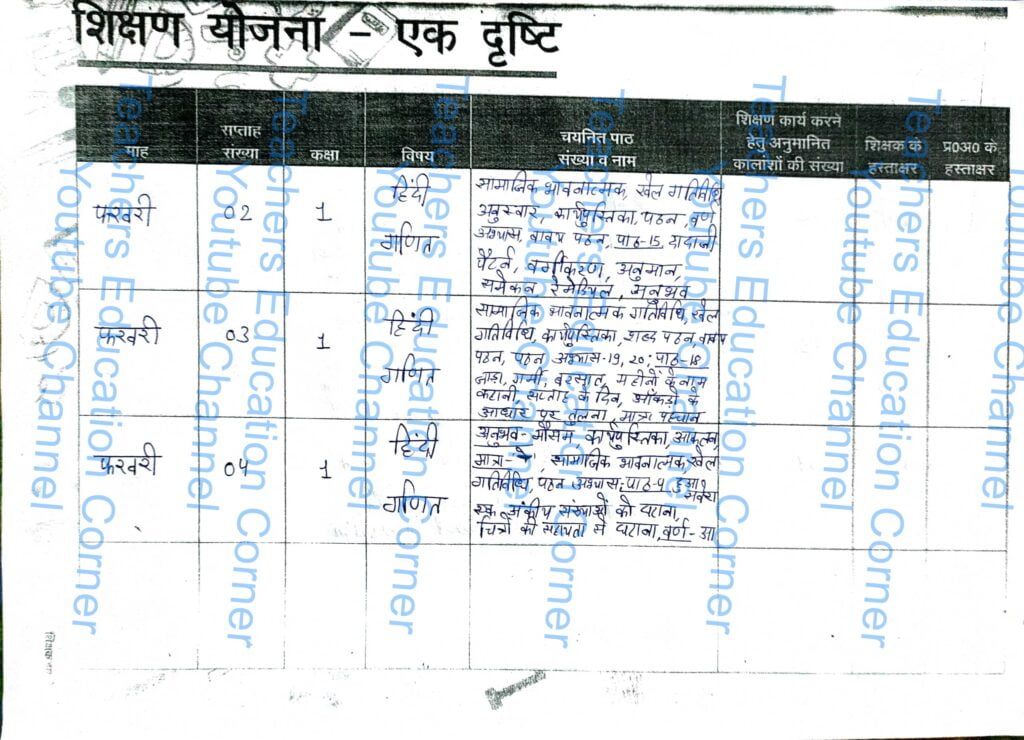 शिक्षण योजना - एक दृष्टि
माह
सप्ताह
संख्या
कक्षा
विषय
चयनित पाठ
संख्या व नाम
शिक्षण कार्य करने
हेतु अनुमानित
कालांशों की संख्या
शिक्षक के
हस्ताक्षर
प्र०अ० के
हस्ताक्षर
फरवरी 02 1 हिंदी
गणित
सामाजिक भावनात्मक, खेल गतिविधि
अनुस्वार, कार्यपुस्तिका, पठन, वर्ण
अभ्यास, वाक्य पठन, पाठ-15, दादाजी
पैटर्न, वर्गीकरण, अनुमान,
रेमेडियल, अनुभव
फरवरी 03 1 हिंदी
गणित
सामाजिक भावनात्मक गतिविधि, खेल
गतिविधि, कार्यपुस्तिका, शब्द पठन, वाक्य
पठन, पठन अभ्यास-19, 20; पाठ-18
जाड़ा, गर्मी, बरसात, महीनों के नाम
कहानी, सप्ताह के दिन, आँकड़ों के
आधार पर तुलना, मात्रा पहचान
फरवरी 04 1 हिंदी
गणित
अनुभव-मौसम, कार्यपुस्तिका, आकलन,
मात्रा- सामाजिक भावनात्मक, खेल
गतिविधि, पठन अभ्यास; पाठ-4 हुआ
एक अंकीय संख्याओं को घटाना,
चित्रों की सहायता से घटाना, वर्ण-आ
Teachers Education Corner
Youtube Channel
Teachers Education Corner
Youtube Channel
Teachers Education Corner
Youtube Channel
Teachers Education Corner
Youtube Channel
Teachers Education Corner
Youtube Channel
Teachers Education Corner
Youtube Channel